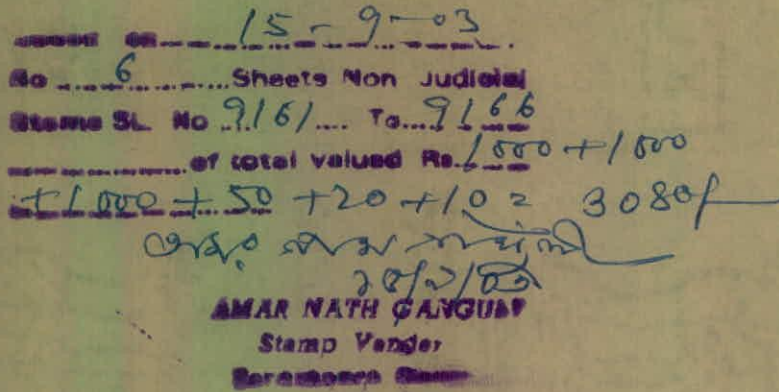 on 15-9-03
No 6 Sheets Non Judicial
Stamp SL. No 9161 To 9166
of total valued Rs. 1000 + 1000
+ 1000 + 50 + 20 + 10 = 3080/-
অমর নাথ গাঙ্গুলী
১৫/৯/০৩
AMAR NATH GANGULY
Stamp Vendor